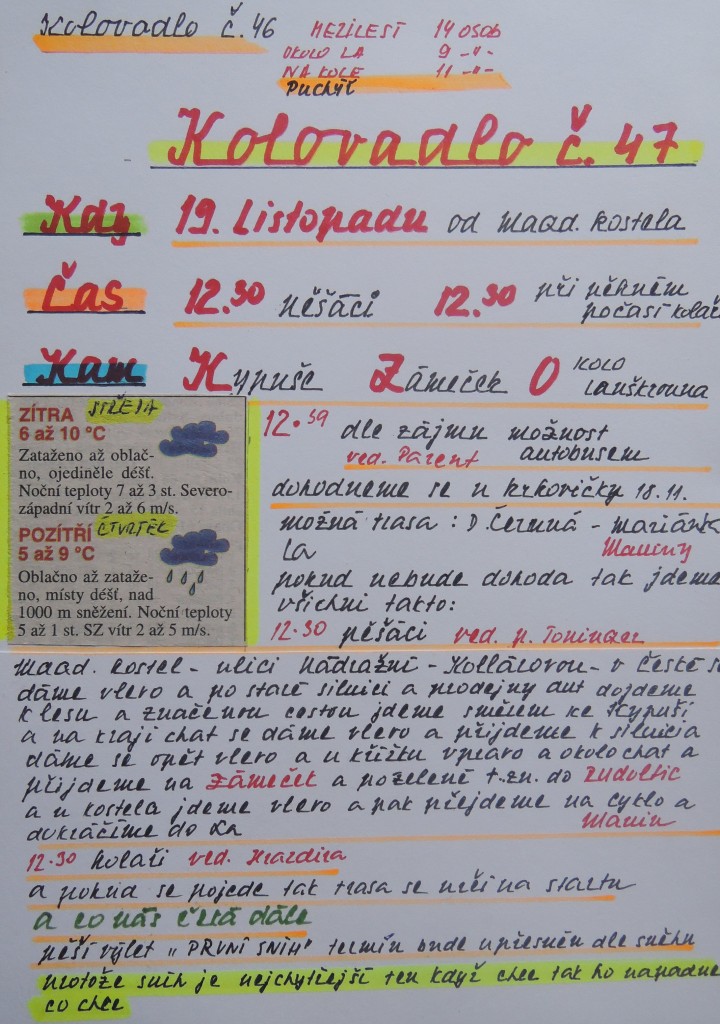 Kolovadlo č. 46
MEZILESÍ 14 OSOB
OKOLO LA 9 -"-
NA KOLE 11 -"-
Puchýř
Kolovadlo č. 47
Kdy 19. Listopadu od Maad. kostela
Čas 12.30 pěšáci 12.30 při pěkném
počasí kolaři
Kam Kypuše Zámeček O KOLO
Lanškrouna
ZÍTRA STŘEDA
6 až 10 °C
Zataženo až oblač-
no, ojediněle déšť.
Noční teploty 7 až 3 st. Severo-
západní vítr 2 až 6 m/s.
POZÍTŘÍ ČTVRTEK
5 až 9 °C
Oblačno až zataže-
no, místy déšť, nad
1000 m sněžení. Noční teploty
5 až 1 st. SZ vítr 2 až 5 m/s.
12.39 dle zájmu možnost
ved. Parent autobusem
dohodneme se u krkovičky 18.11.
možná trasa : D. Čermná - Mariánka
La
pokud nebude dohoda tak jdeme
všichni takto:
12.30 pěšáci ved. p. Toninger
Maad. kostel - ulicí Nádražní - Kollárovou - v České s
dáme vlevo a po staré silnici a prodejny aut dojdeme
k lesu a značenou cestou jdeme směrem ke Kypuši
a na kraji chat se dáme vlevo a přijdeme k silnicia
dáme se opět vlevo a u křížku vpravo a okolo chat a
přijdeme na Zámeček a po zelené t.zn. do Rudoltic
a u kostela jdeme vlevo a pak přejdeme na cyklo a
dokráčíme do La
12.30 kolaři ved. Hrazdira
a pokud se pojede tak trasa se určí na startu
a co nás čeká dále
pěší výlet „PRVNÍ SNÍH" termín bude upřesněn dle sněhu
protože sníh je nejchytřejší ten když chce tak ho napadne
co chce